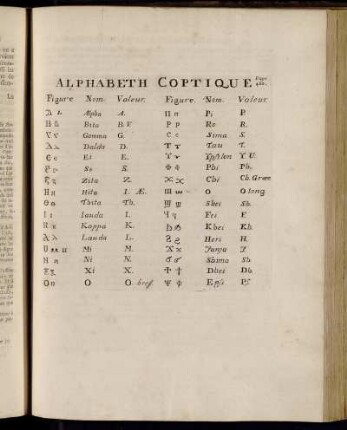 ALPHABETH COPTIQUE Page
Figure Nom. Valeur. Figure Nom. Valeur
Alpha A. Ⲡ ⲡ Pi P.
Ⲃ ⲃ Bita B. V Ⲣ ⲣ Ro R.
Ⲅ ⲅ Gamma G. Ⲥ ⲥ Sima S.
Ⲇ ⲇ Dalda D. Ⲧ ⲧ Tau T.
Ⲉ ⲉ Ei E. Ⲩ ⲩ Ypsilon Y U.
So S. Ⲫ ⲫ Phi Ph.
Ⲍ ⲍ Zita Z. Ⲭ ⲭ Chi Ch. Græc
Ⲏ ⲏ Hita I. Æ. Ⲱ ⲱ O O long
Ⲑ ⲑ Thita Th. Ϣ ϣ Shei Sh.
Ⲓ ⲓ Iauda I. Ϥ ϥ Fei F.
Ⲕ ⲕ Kappa K. Ϧ ϧ Khei Kh.
Ⲗ ⲗ Lauda L. Ϩ ϩ Hori H.
Ⲙ ⲙ Mi M. Ϫ ϫ J.
Ⲛ ⲛ Ni N. Ϭ ϭ Shima Sh.
Ⲝ ⲝ Xi X. Ϯ ϯ Dhei Dh.
Ⲟ ⲟ O O. bref Ⲯ ⲯ Epsi Ps